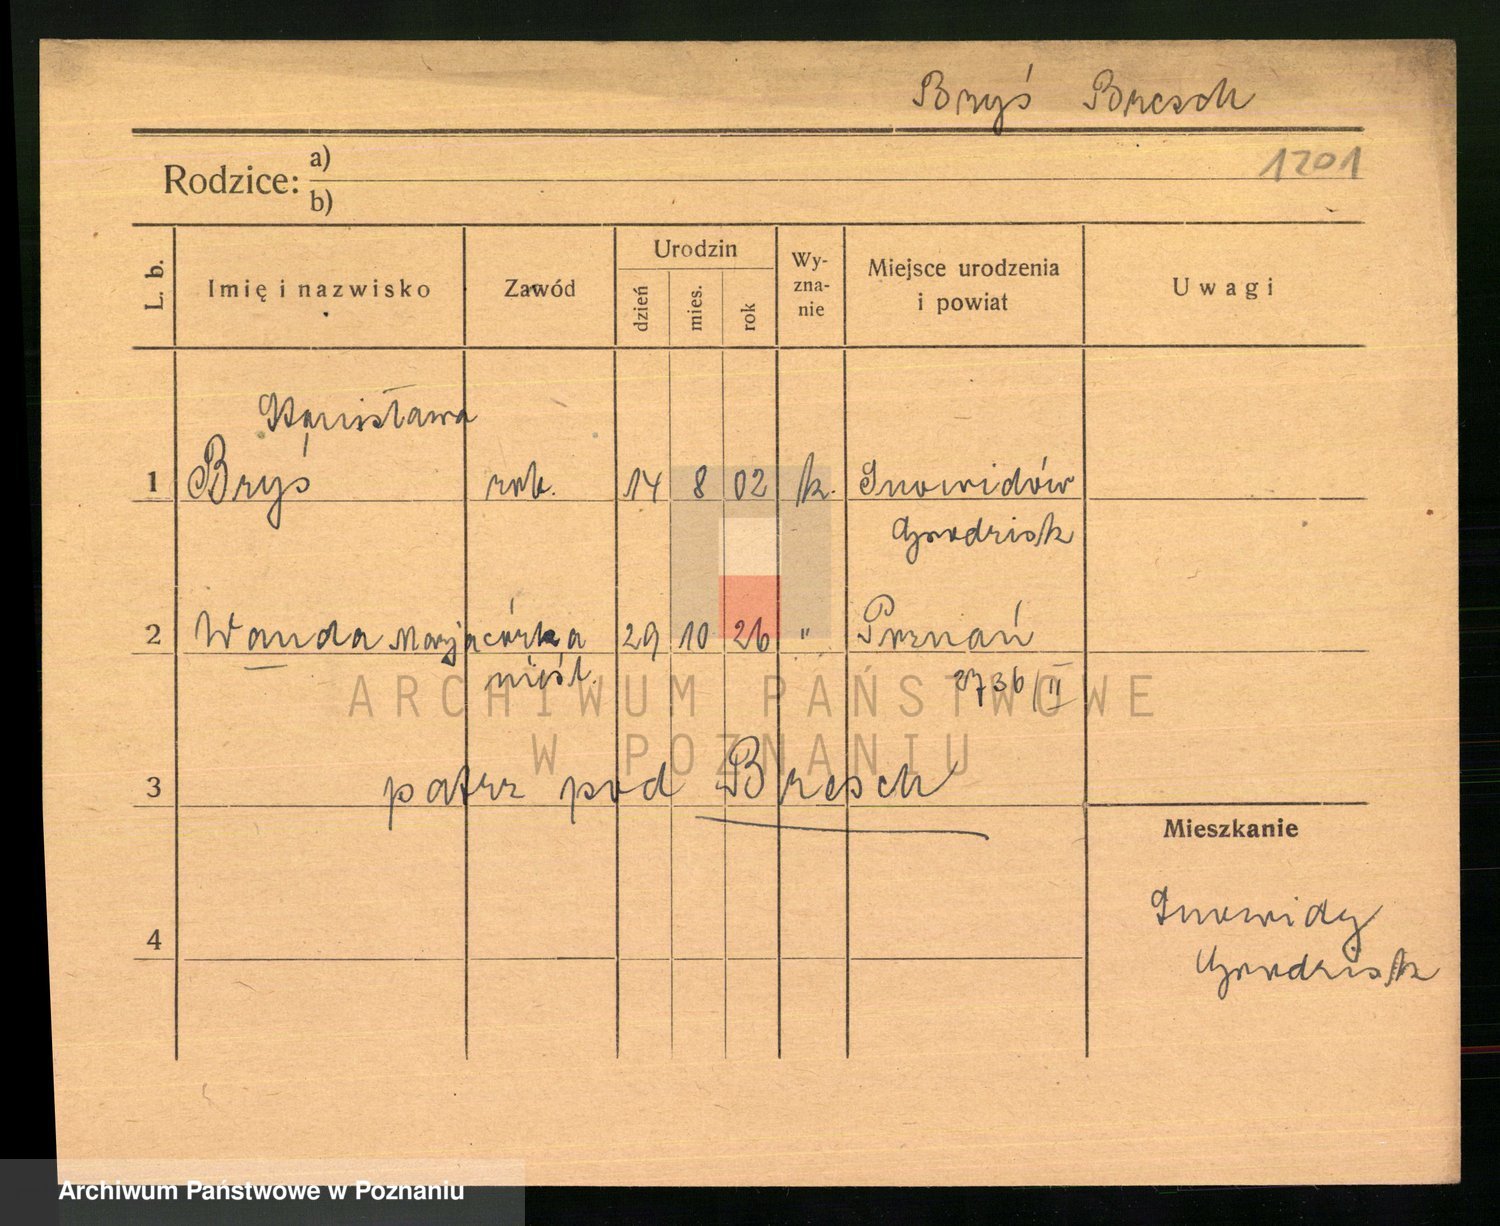 Bryś Bresch
Rodzice: a)
b)
1201
L. b.
Imię i nazwisko
Zawód
Urodzin
dzień
mies.
rok
Wy-
zna-
nie
Miejsce urodzenia
i powiat
Uwagi
Stanisława
1 Bryś rob. 14 8 02 k. Snowidów
Grodzisk
2 Wanda Marja córka 29 10 26 " Poznań
nieśl. 2736/II
ARCHIWUM PAŃSTWOWE
W POZNANIU
3 patrz pod Bresch
Mieszkanie
4
Snowidy
Grodzisk
Archiwum Państwowe w Poznaniu